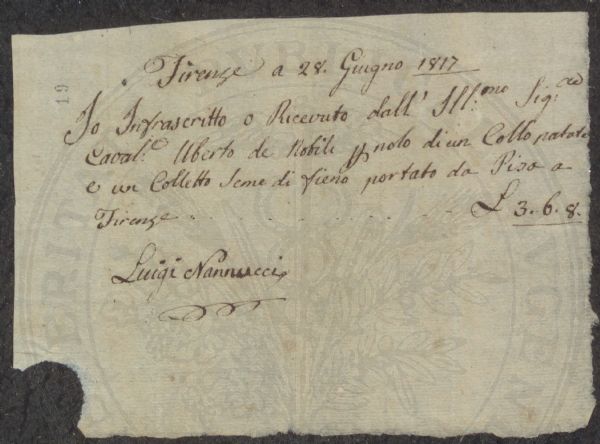 Firenze a 28. Giugno 1817
Io Infrascritto o Ricevuto dall' Ill:mo Sig:re
Caval:e Uberto de Nobili p nolo di un Collo patate
e un Colletto Seme di fieno portato da Pisa a
Firenze . . . . . . . . . . £ 3. 6. 8.
Luigi Nannucci
19